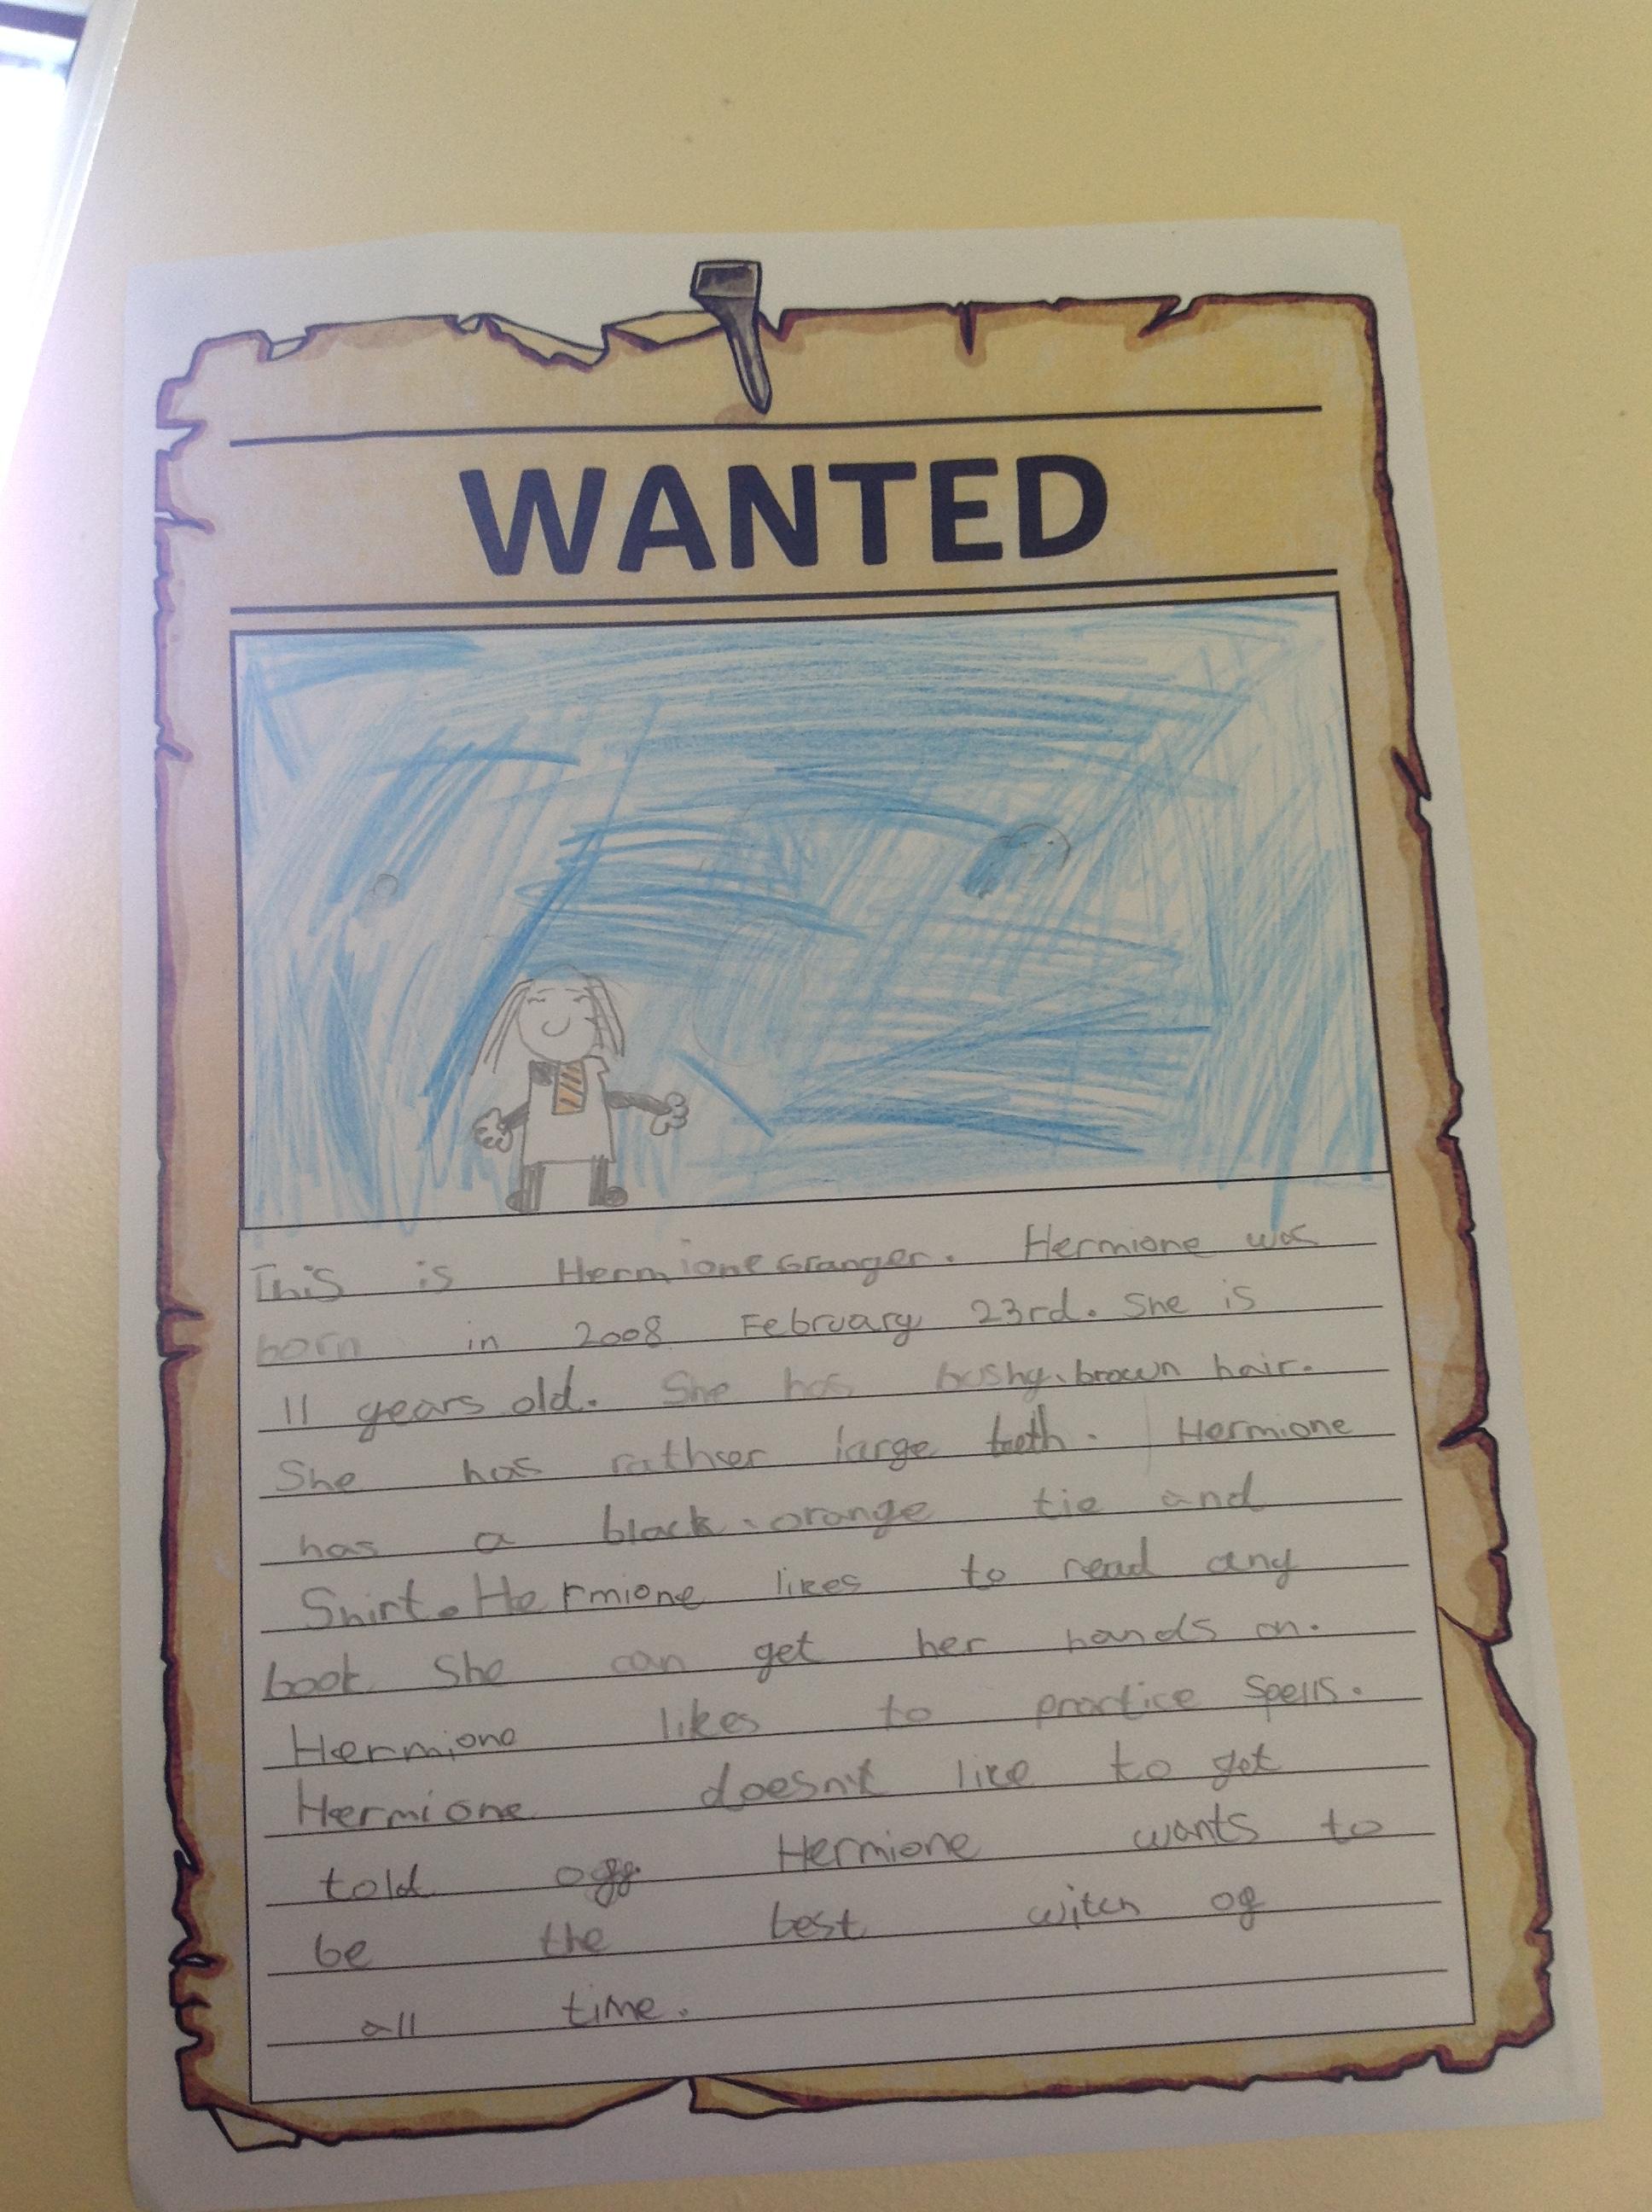 WANTED
This is Hermione Granger. Hermione was
born in 2008 February 23rd. She is
11 years old. She has bushy, brown hair.
She has rather large teeth. Hermione
has a black, orange tie and
Shirt. Hermione likes to read any
book She can get her hands on.
Hermione likes to practice Spells.
Hermione doesn't like to get
told off. Hermione wants to
be the best witch of
all time.